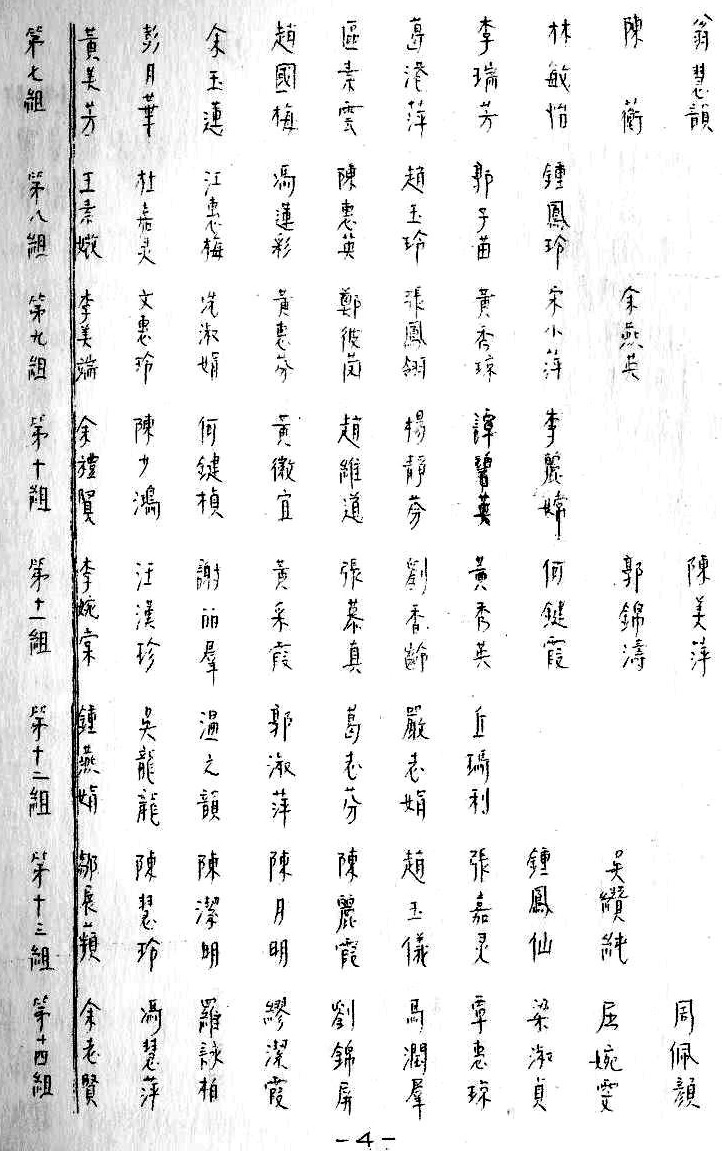 第七組 黃美芳 彭月華 余玉蓮 趙國梅 區素雲 葛港萍 李瑞芳 林敏怡 陳蘅 翁慧韻
第八組 王素嫩 杜嘉灵 江惠梅 馮蓮彩 陳惠英 趙玉玲 郭子苗 鍾鳳玲
第九組 李美端 文惠玲 冼淑娟 黃惠芬 鄭彼茵 張鳳翎 黃秀琼 宋小萍 余燕英
第十組 余禮賢 陳少鴻 何鍵楨 黃徽宜 趙維道 楊靜芬 譚碧英 李麗嫦
第十一組 李婉棠 汪漢珍 謝丽羣 黃采霞 張慕真 劉香齡 黃秀英 何鍵霞 郭錦濤 陳美萍
第十二組 鍾燕娟 吳龍龍 温之韻 郭淑萍 葛志芬 嚴志娟 丘瑪利
第十三組 鄒展蘋 陳慧玲 陳潔明 陳月明 陳麗霞 趙玉儀 張嘉灵 鍾鳳仙 吳纘純
第十四組 余老賢 馮慧萍 羅詠柏 繆潔霞 劉錦屏 馬潤羣 覃惠琼 梁淑貞 屈婉雯 周佩顏
-4-